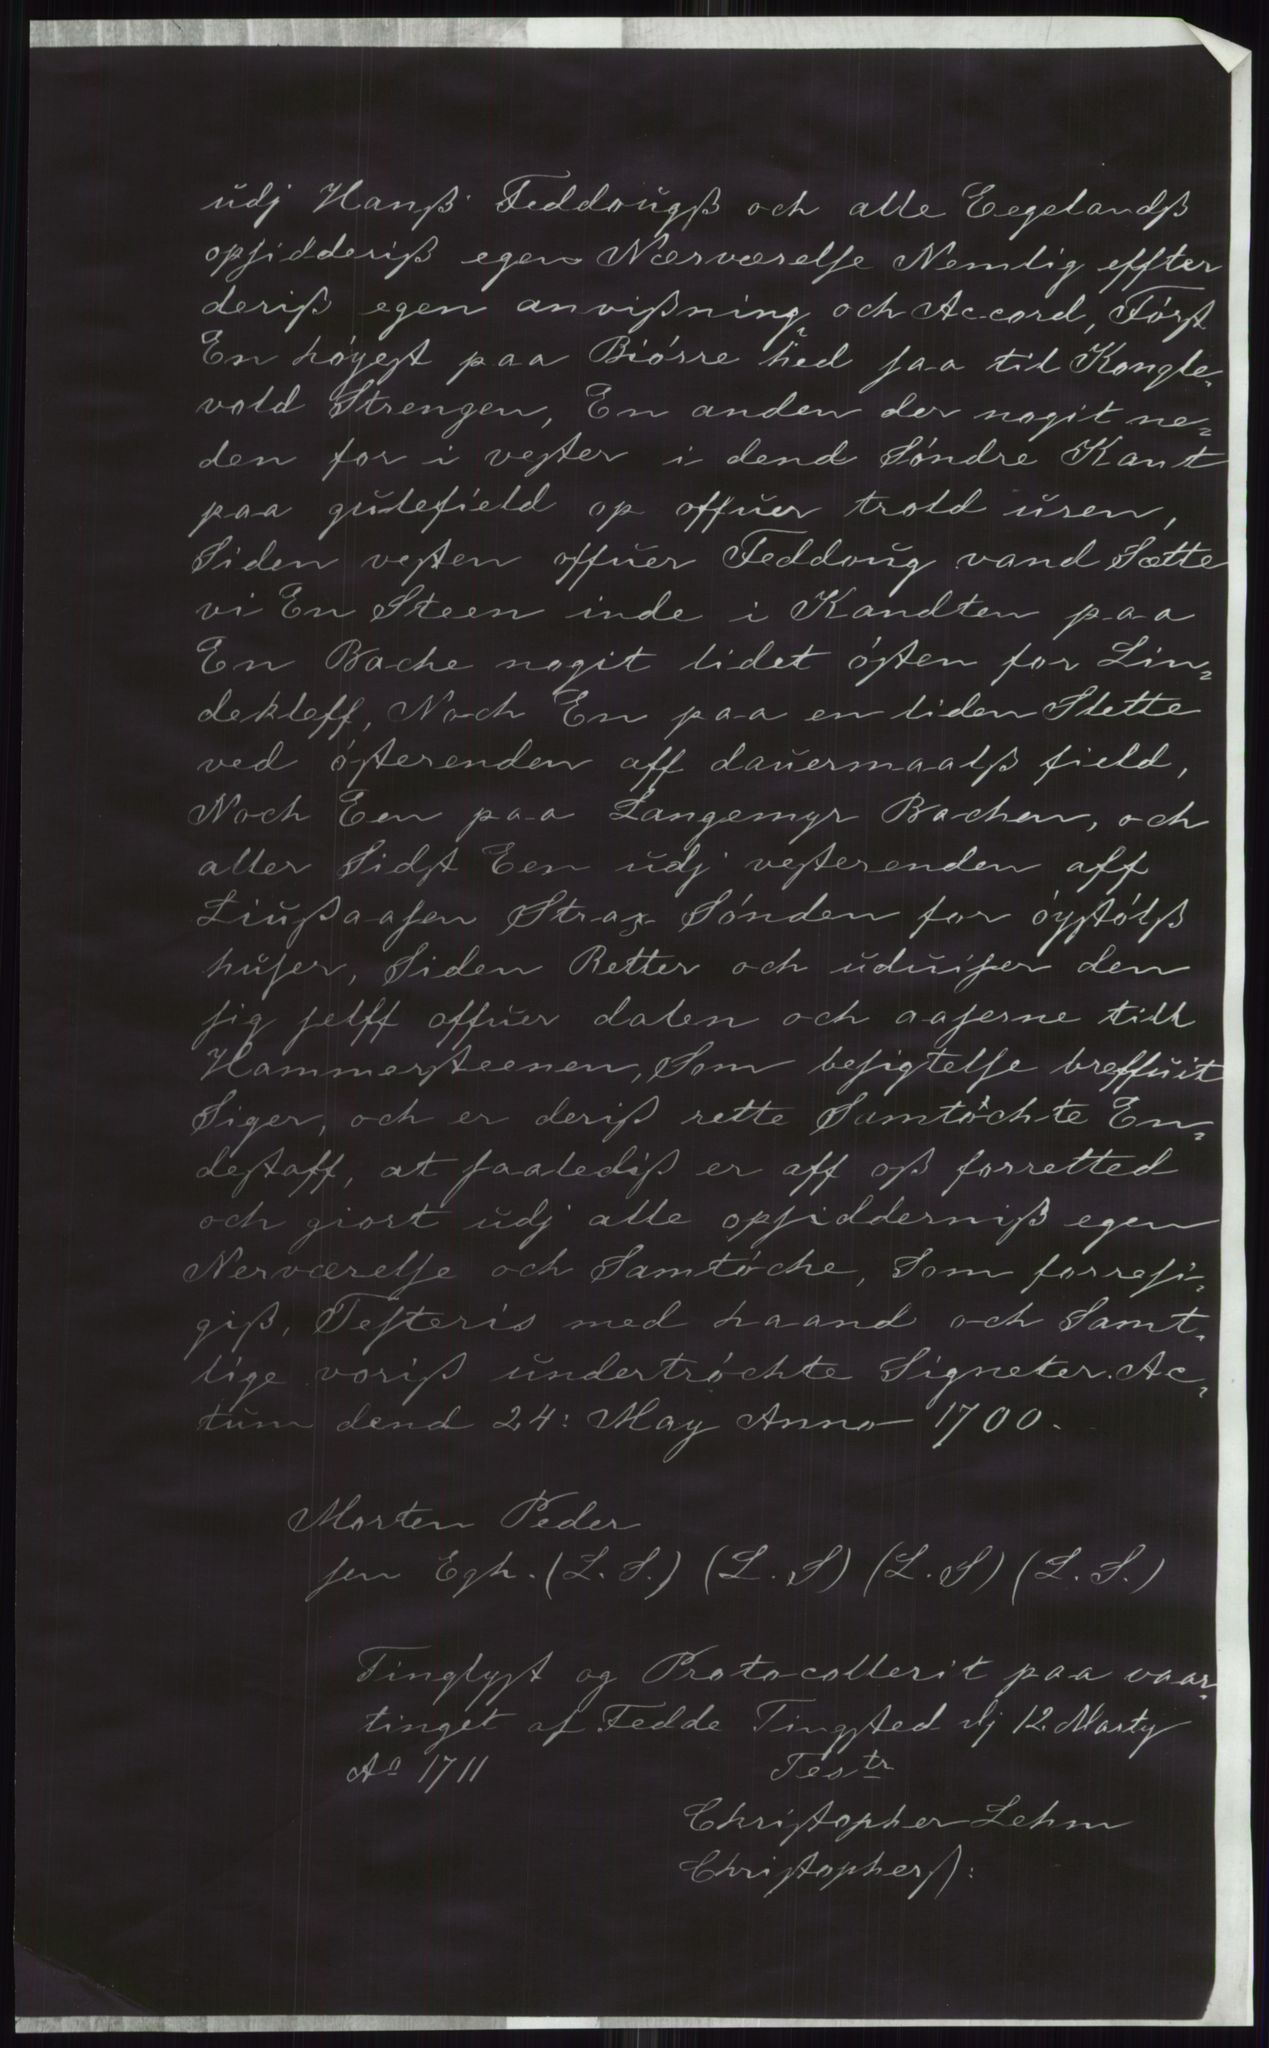 udj Hanß Feddougß och alle Eegelandß
opsidderiß egen Nærværelse Nemlig effter
deriß egen anvißning och Accord, Først
En høyest paa Biørre hed saa til Kongle-
vold Strengen, En anden der nogit ne=
den for i vester i dend Søndre Kant
paa gulefield op offuer trold uren,
Siden vesten offuer Feddoug vand Sætte
vi En Steen inde i Kandten paa
En Bache nogit lidet østen for Lin=
dekleff, Noch En paa en liden Slette
ved østerenden aff dauermaalß field,
Noch Een paa Langemyr Bachen, och
aller Sidst Een udj vesterenden aff
Liußaasen Strax Sønden for øystølß
huser, Siden Retter och uduiser den
sig selff offuer dalen och aaserne till
Hammersteenen, Som besigtelse breffuit
Siger, och er deriß rette Samtøchte En=
destaff, at saalediß er aff oß forretted
och giort udj alle opsidderniß egen
Nerværelse och Samtøche, Som forresi=
giß, Testeris med haand och Samt=
lige voriß undertrøchte Signeter. Ac=
tum dend 24: May Anno 1700.
Morten Peder
sen Egh. (L. S.) (L. S) (L. S) (L. S.)
Tinglyst og Protocollerit paa vaar-
tinget af Fedde Tingsted dj 12 Marty
Aº 1711 Testr
Christopher Lehm
Christophers: